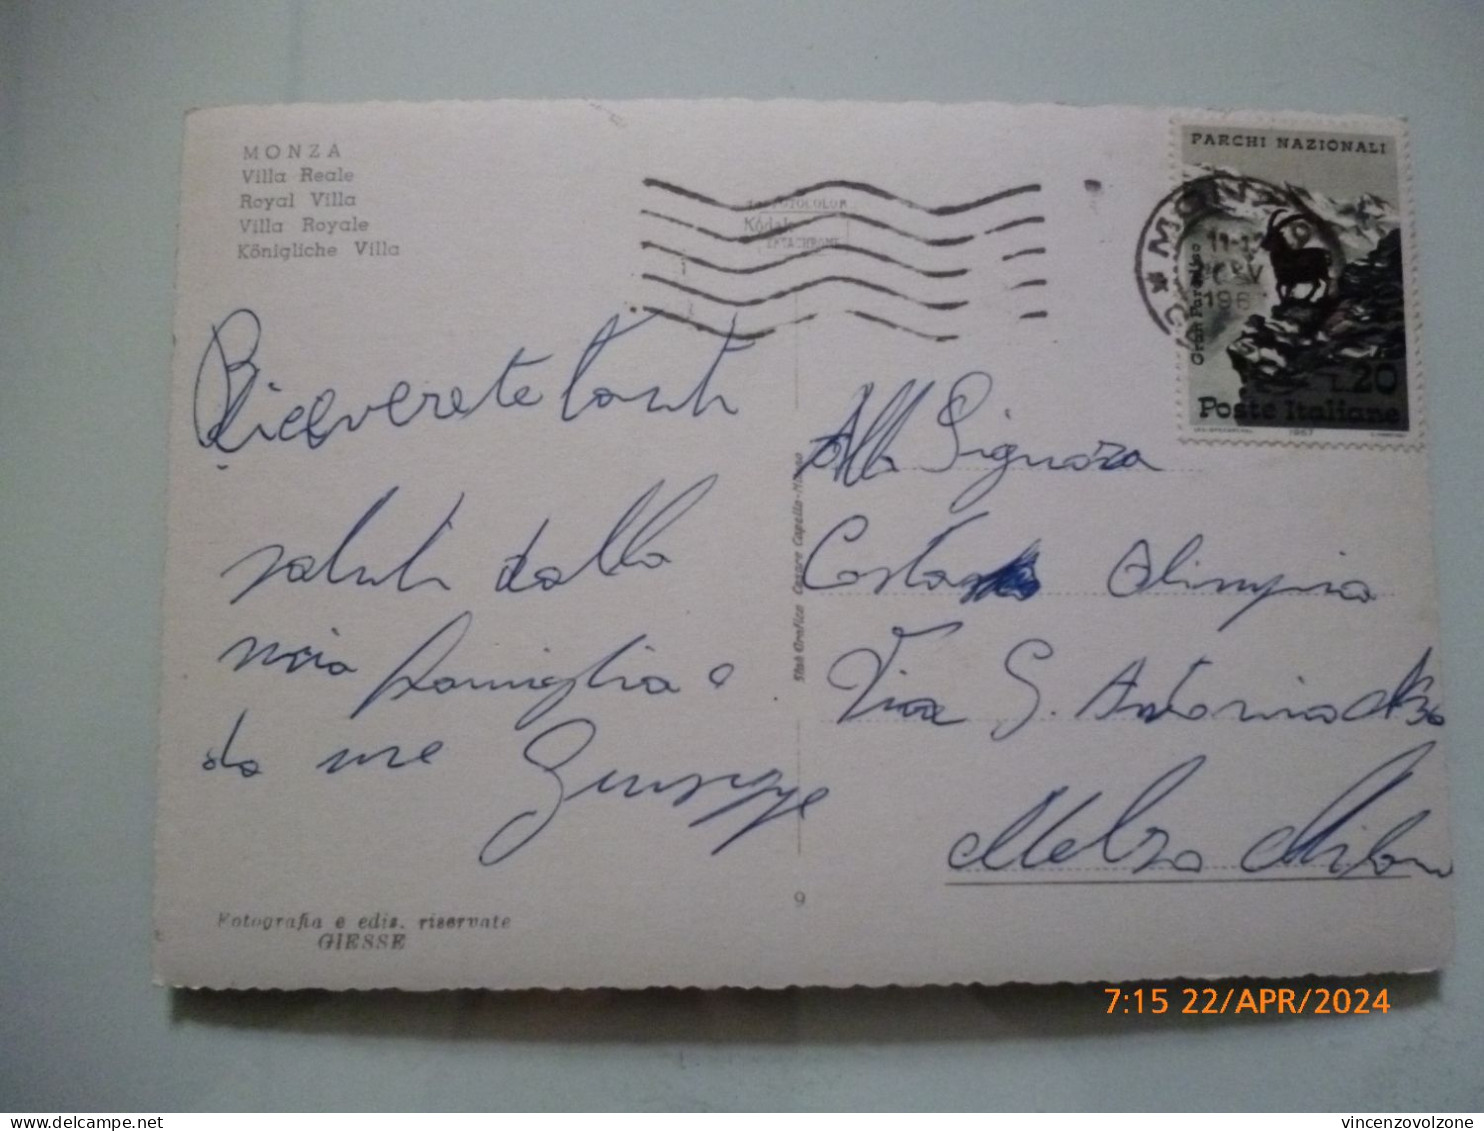 MONZA
Villa Reale
Royal Villa
Villa Royale
Königliche Villa
Kodak
EKTACHROME
PARCHI NAZIONALI
Gran Paradiso
L.20
Poste Italiane
1967
MONZA
196
Riceverete tanti
saluti dalla
mia famiglia e
da me Giuseppe
Alla Signora
Costa Olimpia
Via S. Antonino
Melzo Milano
Stab Grafico Cesare Capello - Milano
9
Fotografia e ediz. riservate
GIESSE
7:15 22/APR/2024
vincenzovolzone